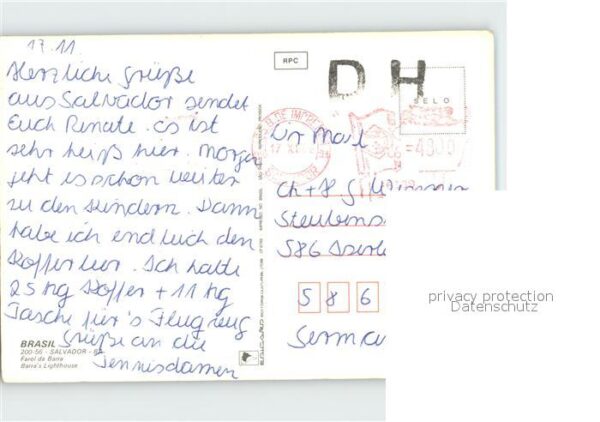 17.11.
Herzliche Grüße
aus Salvador sendet
Euch Renate. Es ist
sehr heiß hier. Morgen
geht es schon weiter
zu den Kindern. Dann
habe ich endlich den
Koffer leer. Ich hatte
25 kg Koffer + 11 kg
Tasche für's Flugzeug
Grüße an die
Tennisdamen
BRASIL
200-56 - SALVADOR - BA
Farol da Barra
Barra's Lighthouse
RPC
D H
SELO
Air Mail
Ch + H G
Steubens
586 Iserl
5 8 6
Germa
privacy protection
Datenschutz